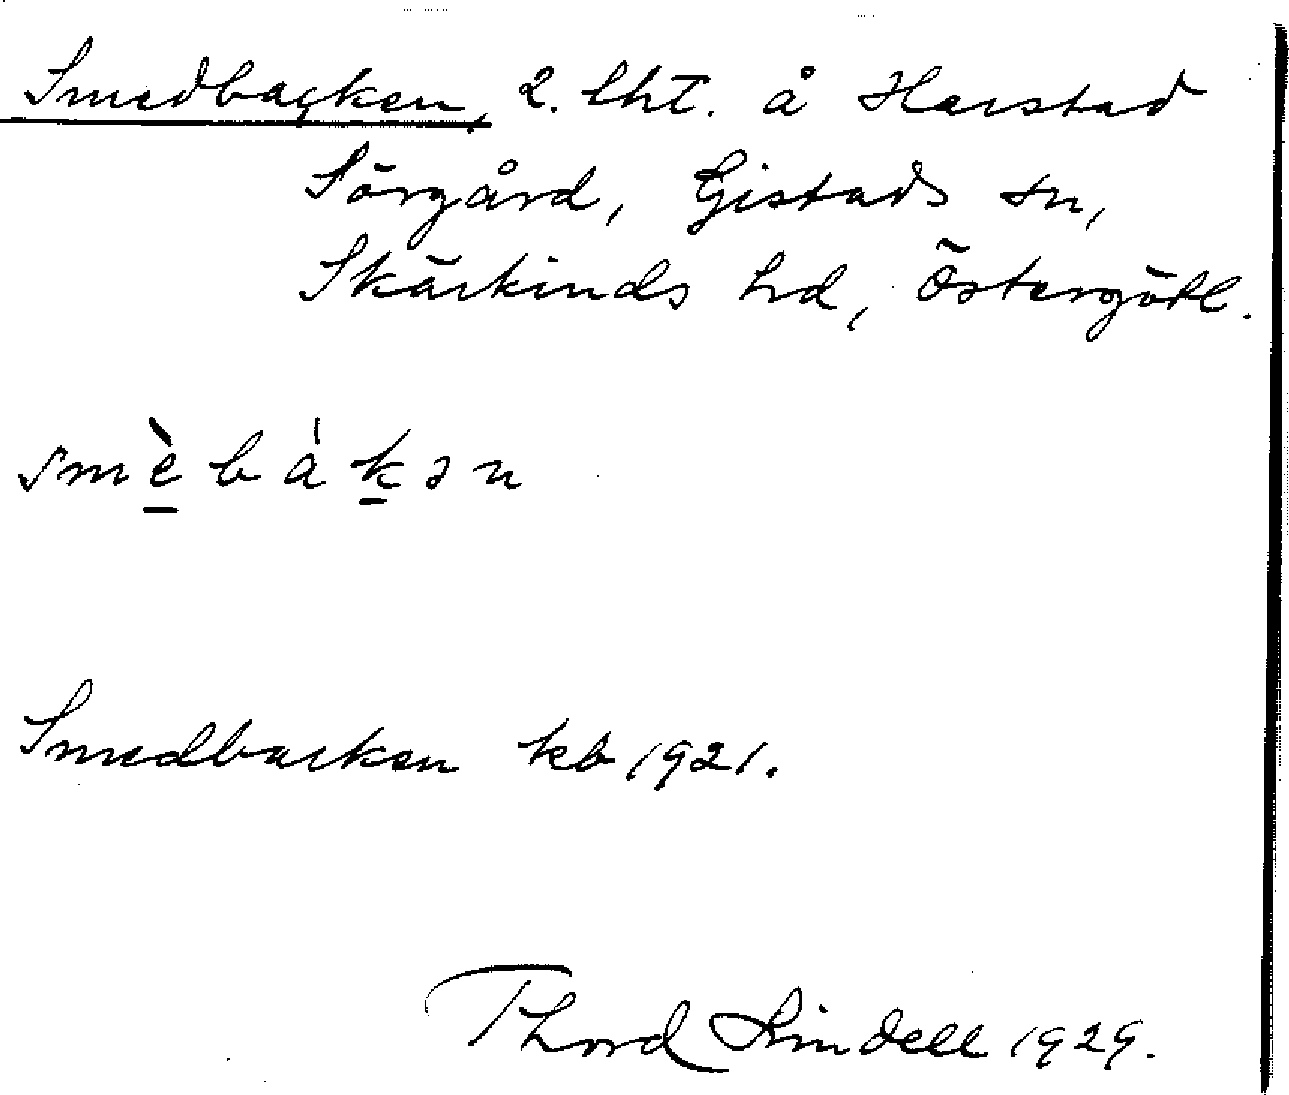 Smedbacken, 2. lht. å Harstad
Sörgård, Gistads sn,
Skärkinds hd, Östergötl.
smèbákən
Smedbacken kb 1921.
Thord Lindell 1929.